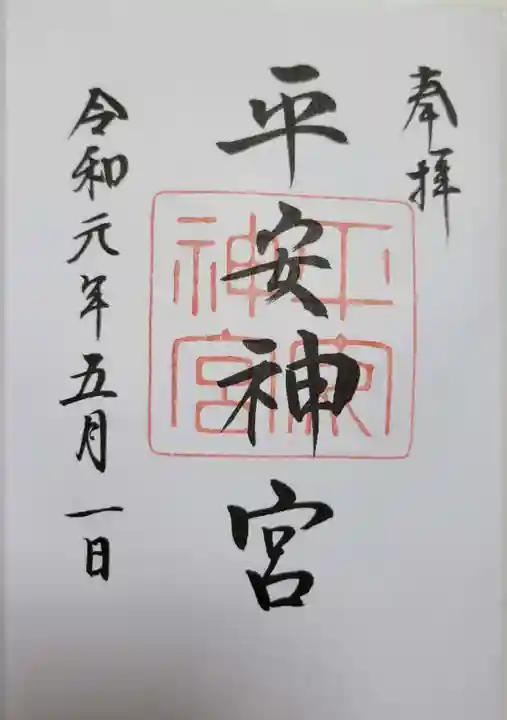 奉拝
平安神宮
平安神宮
令和元年五月一日